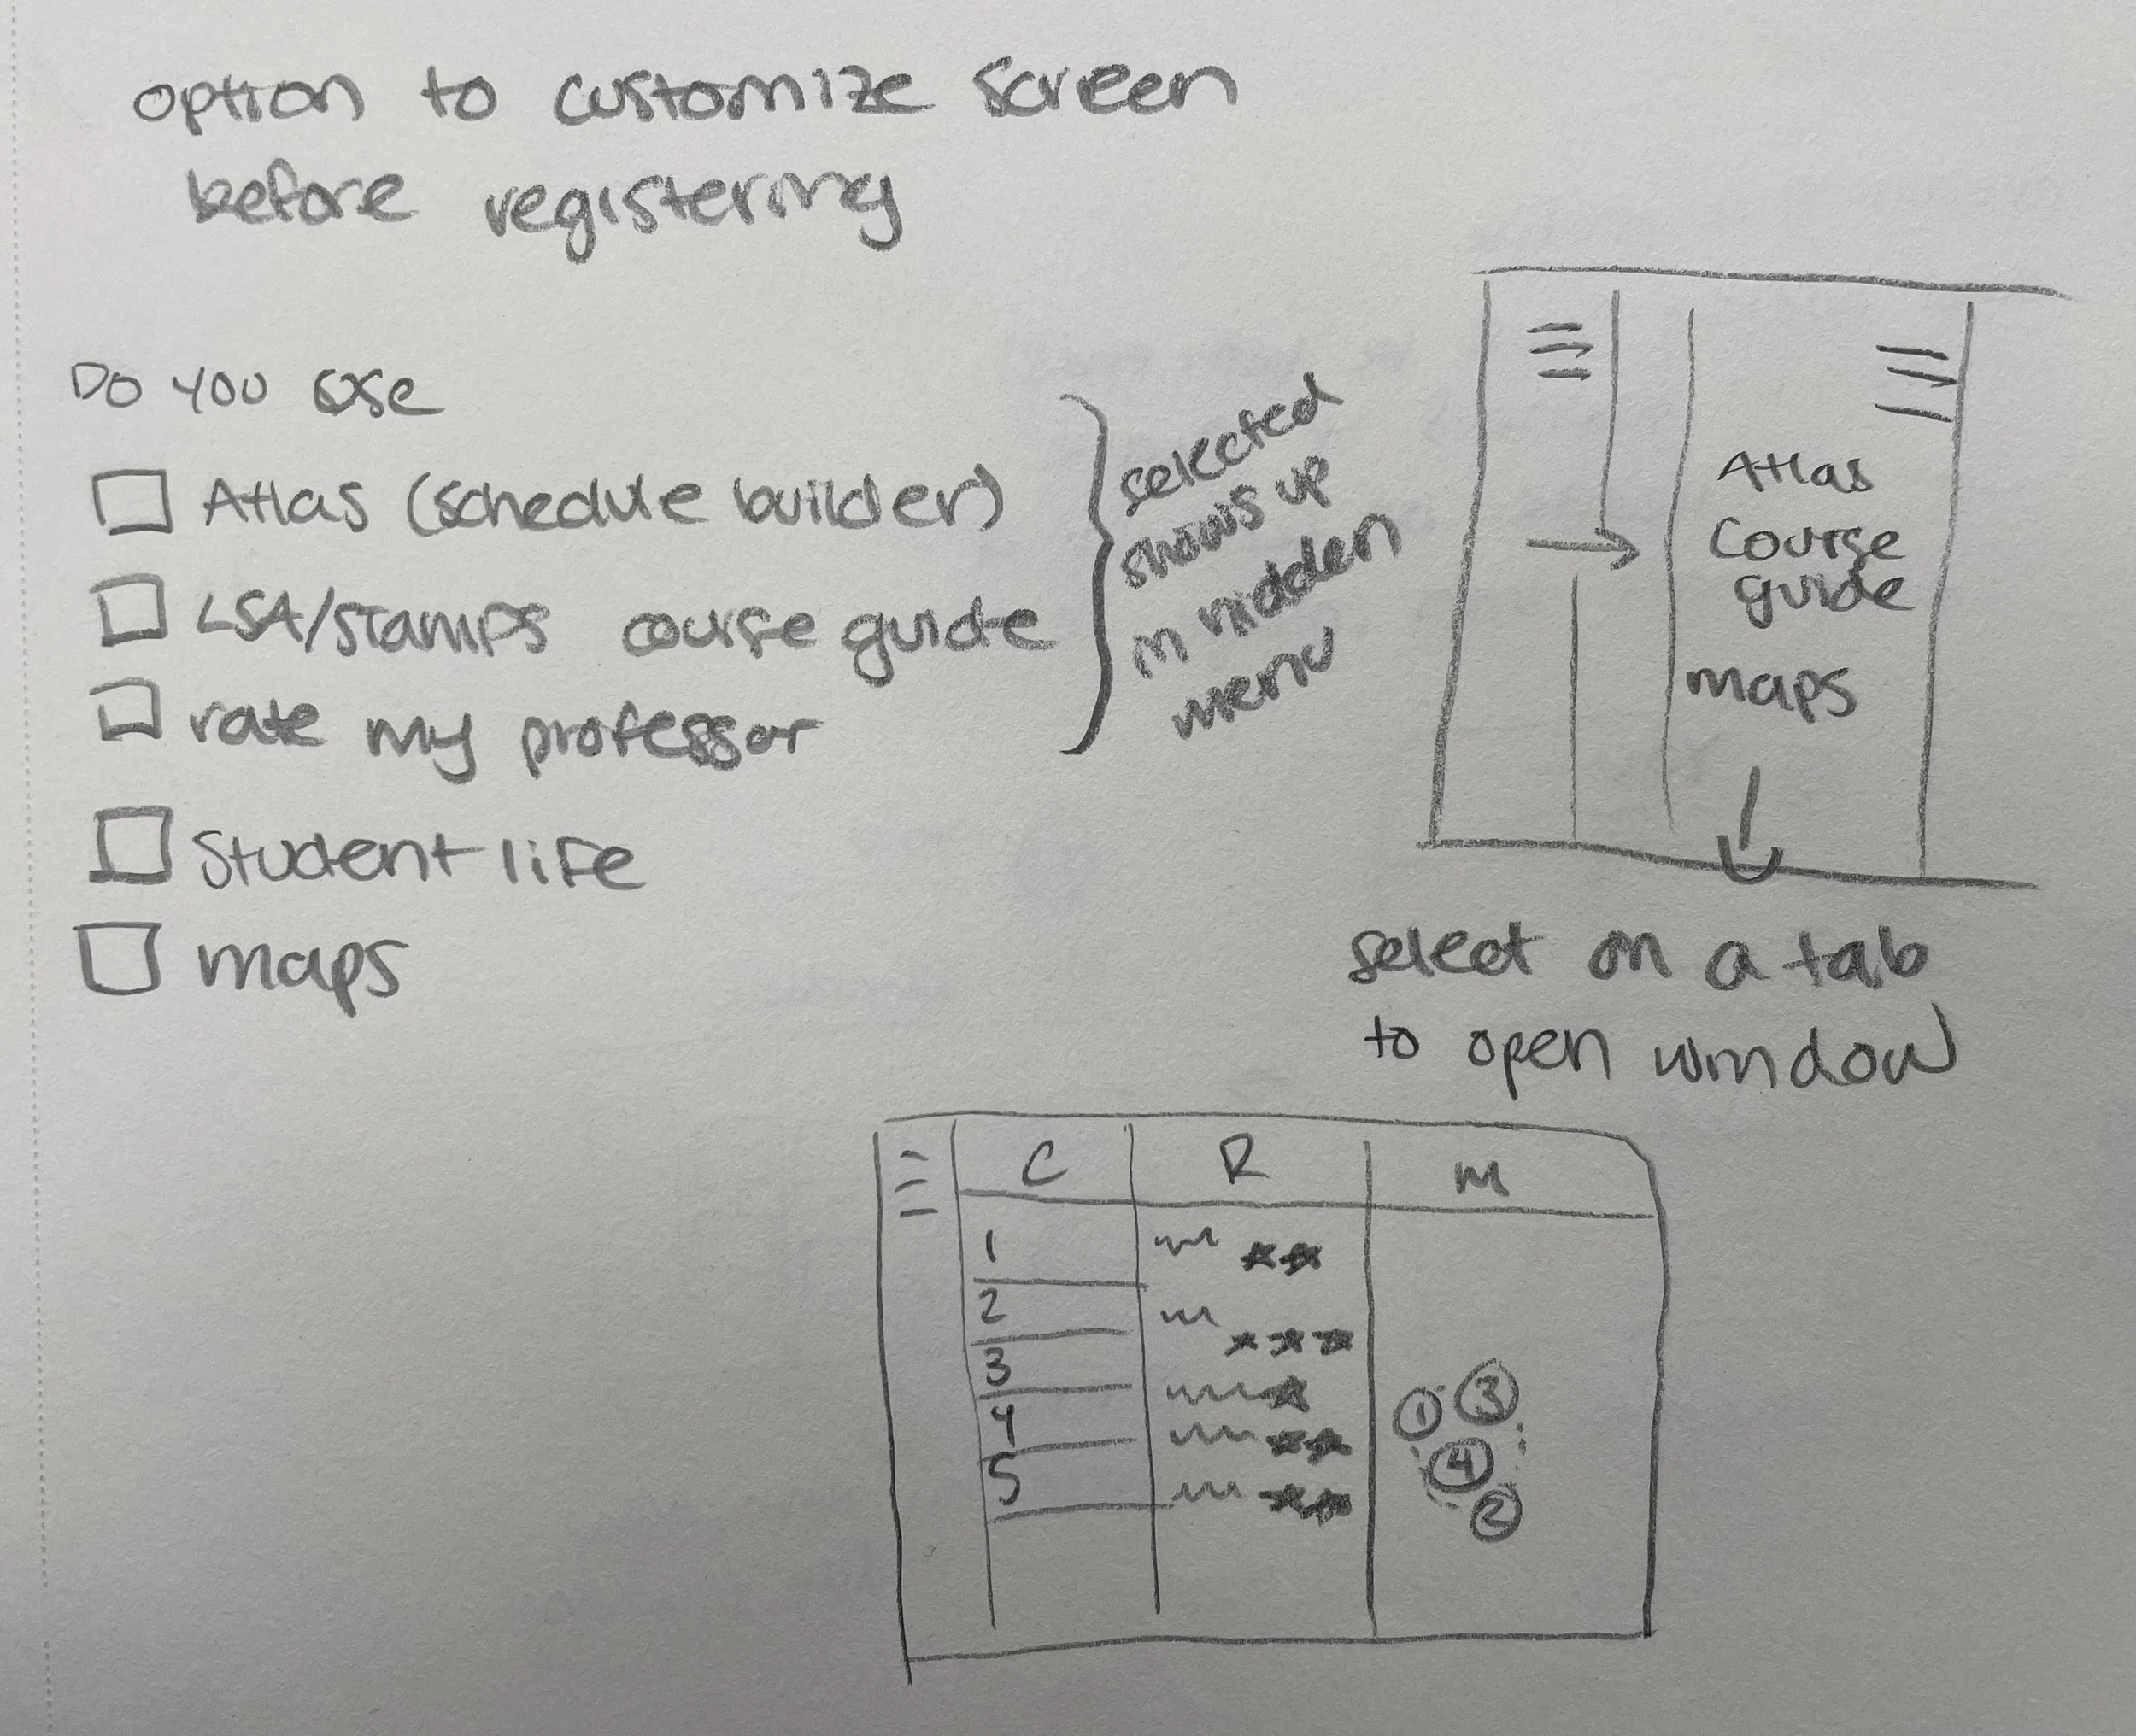 option to customize screen
before registering
Do you use
Atlas (schedule builder)
LSA/stamps course guide
rate my professor
Student life
maps
selected
shows up
in hidden
menu
Atlas
Course
guide
maps
select on a tab
to open window
C R M
1
2
3
4
5
1 3
4
2